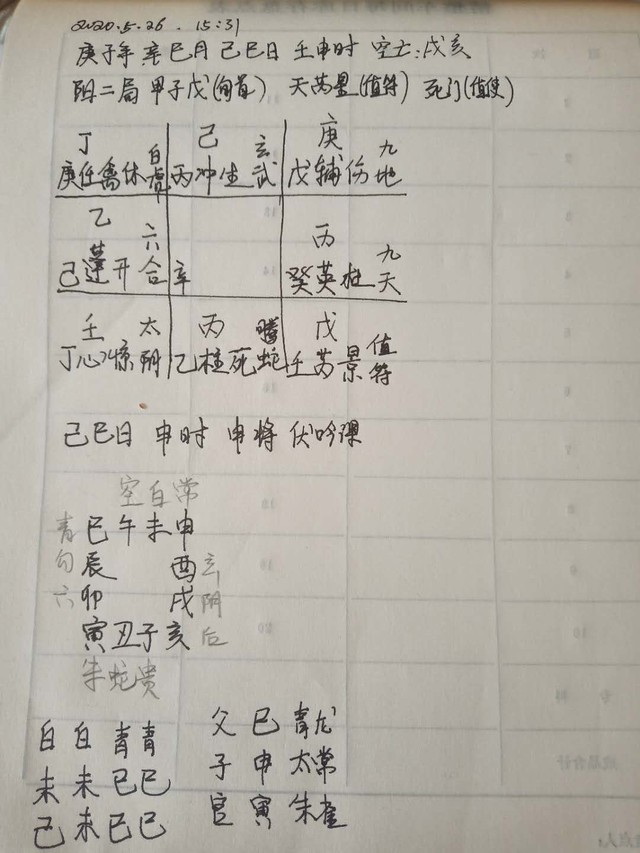 2020.5.26 . 15:31
庚子年 辛巳月 己巳日 壬申时 空亡:戌亥
阴二局 甲子戊(旬首) 天芮星(值符) 死门(值使)
丁 己 庚
白虎 玄武 九地
庚任禽休 丙冲生 戊辅伤
乙 六合 丙 九天
己蓬开 辛 癸英杜
壬 太阴 丙 螣蛇 戊 值符
丁心惊 乙柱死 壬芮景
己巳日 申时 申将 伏吟课
空白常
青 巳午未申
勾 辰 酉 玄
六 卯 戌 阴
寅丑子亥 后
朱蛇贵
白 白 青 青
未 未 巳 巳
己 未 巳 巳
父 巳 青龙
子 申 太常
官 寅 朱雀